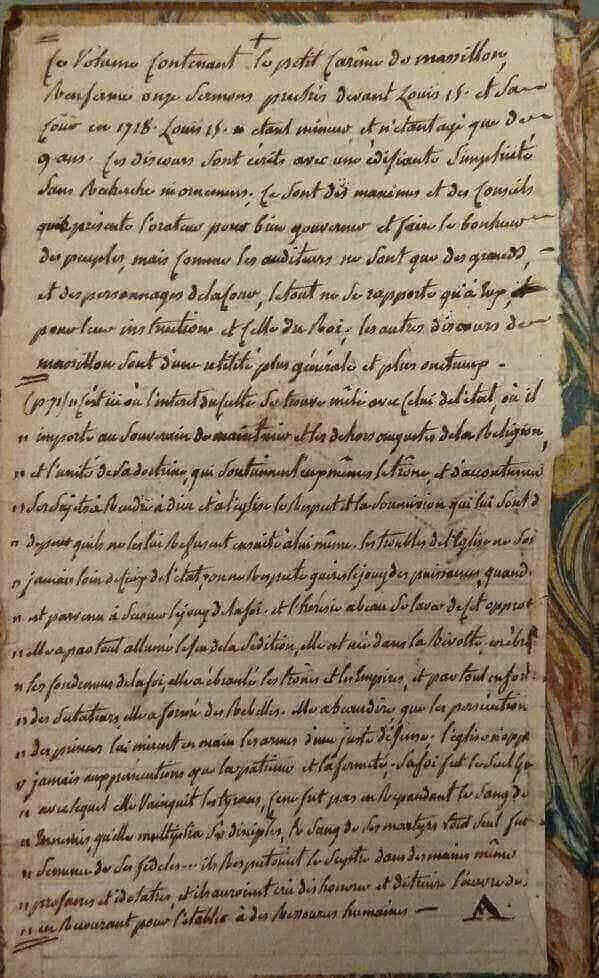 Ce Volume Contenant le petit Carême de massillon,
Renferme onze Sermons prechés devant Louis 15. et Sa
Cour en 1718. Louis 15. etant mineur, et n'etant agé que de
9. ans. Ces discours Sont écrits avec une édifiante Simplicité
Sans Recherche ni ornemens, Ce Sont des maximes et des Conseils
que présente l'orateur pour bien gouverner et faire le bonheur
des peuples, mais Comme les auditeurs ne Sont que des grands,
et des personnages de la Cour, le tout ne Se rapporte qu'à Eux,
pour leur instruction et Celle du Roi; les autres discours de
massillon Sont d'une utilité plus générale et plus onctueux.
(p. 71) " C'est ici où l'interet du Culte Se trouve mêlé avec Celui de l'état, où il
" importe au Souverain de maintenir et les dehors augustes de la Religion,
" et l'unité de Sa doctrine, qui Soutiennent Eux mêmes le trône, et d'accoutumer
" Ses Sujets à Rendre à dieu et à l'eglise le Respect et la Soumission qui lui Sont d
" de peur qu'ils ne les lui Refusent ensuite à lui même. les troubles de l'Eglise ne Son
" jamais loin de Ceux de l'état, on ne Respecte guères le joug des puissances, quand
" est parvenu à Secouer le joug de la foi. et l'héresie a beau Se laver de Cet opprob
" elle a partout allumé le feu de la Sédition, elle est née dans la Révolte, en ébra
" les fondemens de la foi, elle a ébranlé les trônes et les Empires, et partout en for
" des Sectateurs, elle a formé des Rebelles. elle a beau dire, que les persécutions
" des princes lui mirent en main les armes d'une juste défense. l'église n'oppo
" jamais aux persécutions que la patience et la fermeté, Sa foi fut le Seul
" avec lequel elle Vainquit les tyrans, Ce ne fut pas en Répandant le Sang de
" Ennemis, qu'elle multiplia Ses disciples, le Sang de Ses martyrs tout Seul fut
" Semence de Ses fideles... ils Respectoient le Sceptre dans des mains même
" profanes et idolatres, et ils auroient cru deshonorer et détruire l'oeuvre de
" en Recourant pour l'etablir à des Ressources humaines —